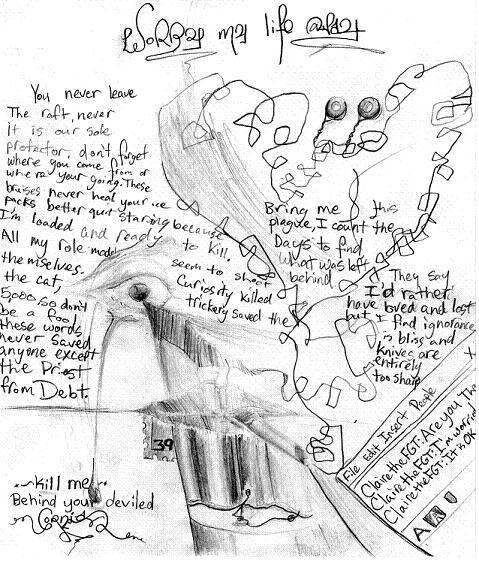 Worry my life away
You never leave
The raft, never
it is our sole
protector, don't forget
where you came from or
where your going. These
bruises never heal your ice
packs better quit staring because
I'm loaded and ready to kill.
All my role models seem to shoot
themselves. Curiosity killed
the cat, trickery saved the
5,000 so don't
be a fool
these words
never saved
anyone except
the Priest
from Debt.
Bring me this
plague, I count the
Days to find
what was left
behind.
They say
I'd rather
have loved and lost
but I find ignorance
is bliss and
knives are
entirely
too sharp
39
File Edit Insert People
ClairetheFGT: Are you The
ClairetheFGT: I'm worried
ClairetheFGT: It is OK
A A
kill me
Behind your deviled